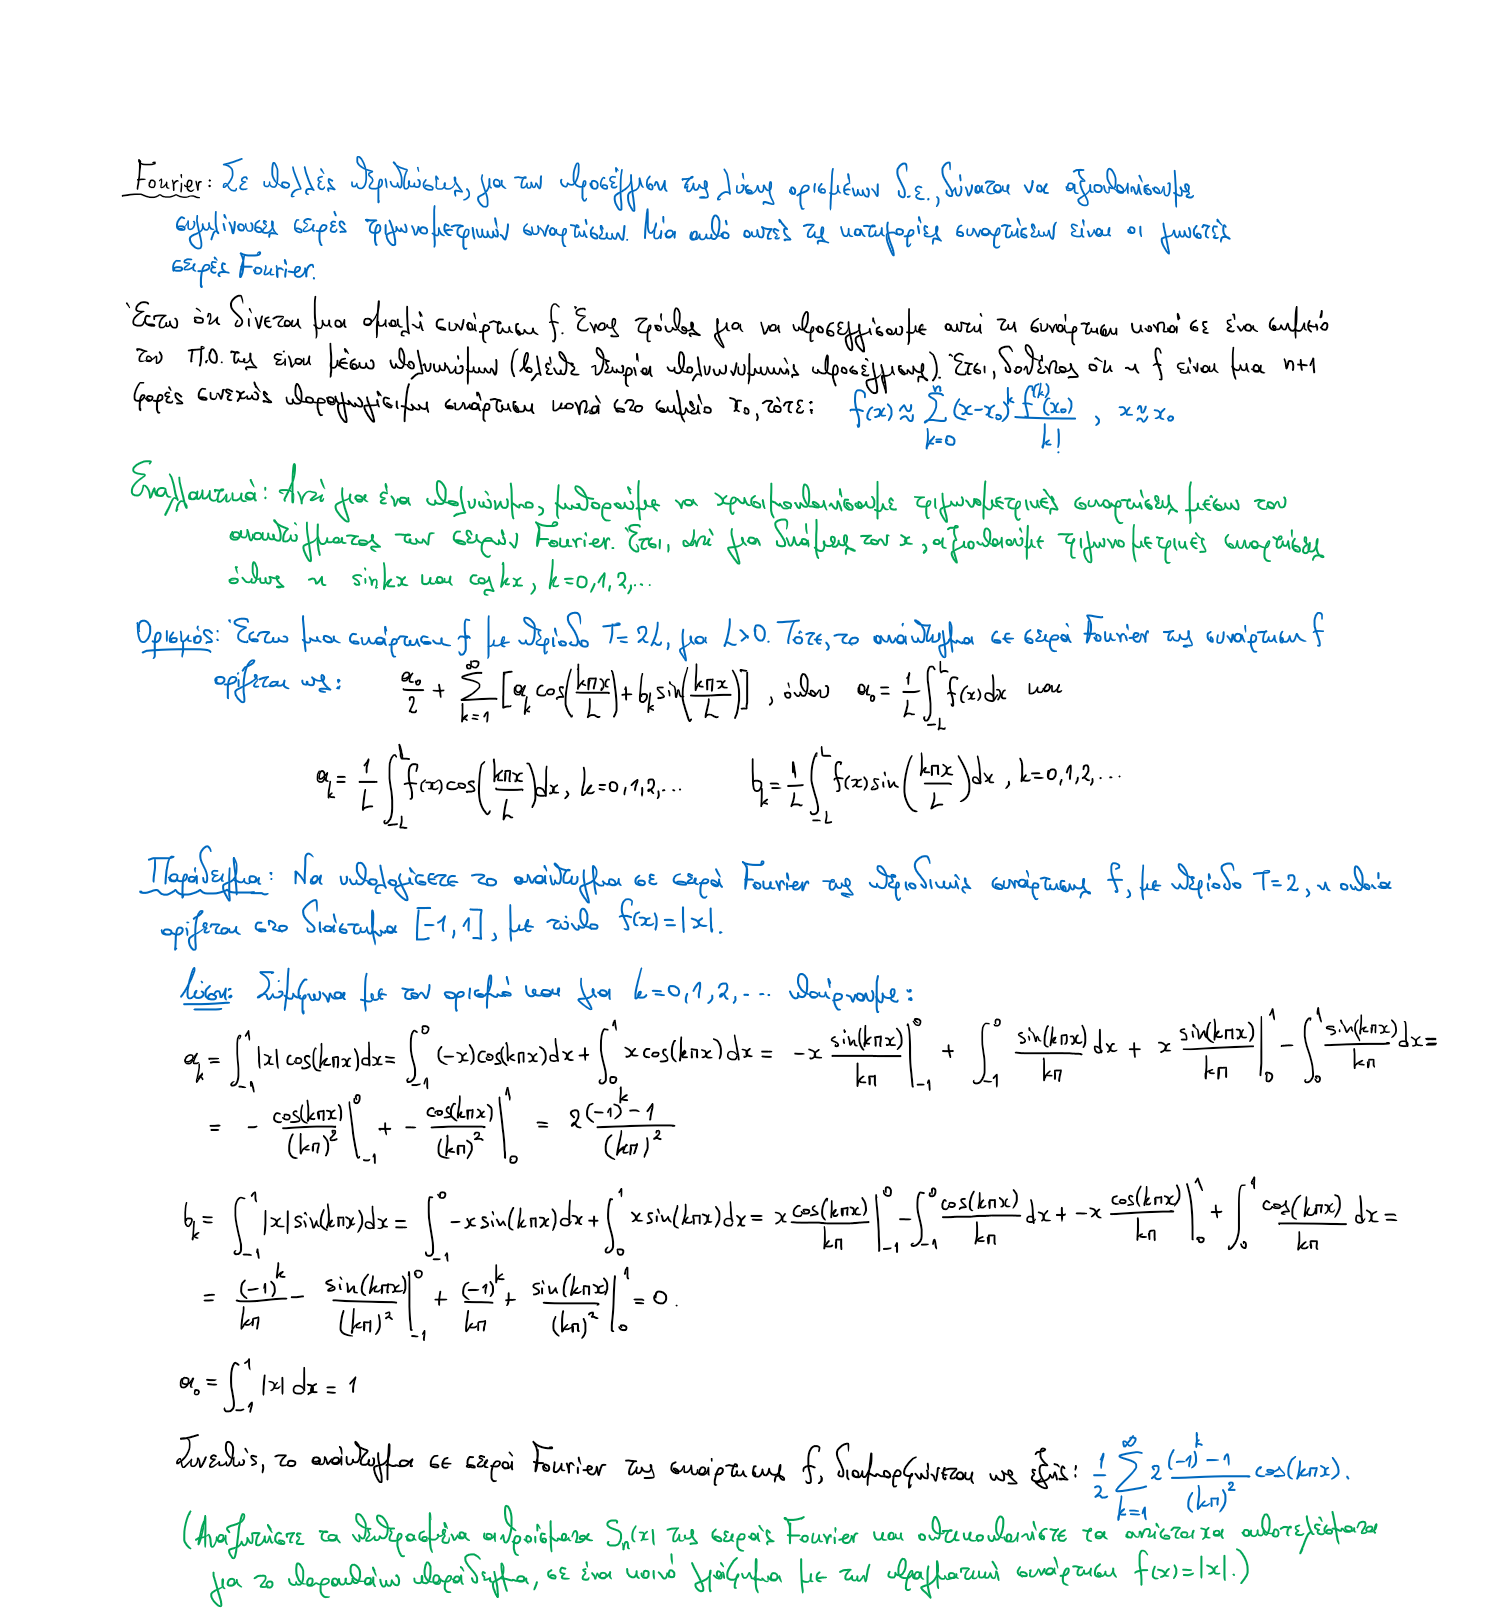 Fourier: Σε πολλές περιπτώσεις, για την προσέγγιση της λύσης ορισμένων δ.ε., δύναται να αξιοποιήσουμε
συγκλίνουσες σειρές τριγωνομετρικών συναρτήσεων. Μία από αυτές τις κατηγορίες συναρτήσεων είναι οι γνωστές
σειρές Fourier.
Έστω ότι δίνεται μια ομαλή συνάρτηση f. Ένας τρόπος για να προσεγγίσουμε αυτή τη συνάρτηση κοντά σε ένα σημείο
του Π.Ο. της είναι μέσω πολυωνύμων (βλέπε θεωρία πολυωνυμικής προσέγγισης). Έτσι, δοθέντος ότι η f είναι μια n+1
φορές συνεχώς παραγωγίσιμη συνάρτηση κοντά στο σημείο x₀, τότε: f(x) ≈ ∑_{k=0}^{n} (x-x₀)^k f^{(k)}(x₀)/k! , x≈x₀
Εναλλακτικά: Αντί για ένα πολυώνυμο, μπορούμε να χρησιμοποιήσουμε τριγωνομετρικές συναρτήσεις μέσω του
αναπτύγματος των σειρών Fourier. Έτσι, αντί για δυνάμεις του x, αξιοποιούμε τριγωνομετρικές συναρτήσεις
όπως η sinkx και coskx, k=0,1,2,...
Ορισμός: Έστω μια συνάρτηση f με περίοδο T=2L, για L>0. Τότε, το ανάπτυγμα σε σειρά Fourier της συνάρτηση f
ορίζεται ως: α₀/2 + ∑_{k=1}^{∞} [α_k cos(kπx/L) + b_k sin(kπx/L)] , όπου α₀ = 1/L ∫_{-L}^{L} f(x)dx και
α_k = 1/L ∫_{-L}^{L} f(x)cos(kπx/L)dx, k=0,1,2,... b_k = 1/L ∫_{-L}^{L} f(x)sin(kπx/L)dx, k=0,1,2,...
Παράδειγμα: Να υπολογίσετε το ανάπτυγμα σε σειρά Fourier της περιοδικής συνάρτησης f, με περίοδο T=2, η οποία
ορίζεται στο διάστημα [-1,1], με τύπο f(x)=|x|.
Λύση: Σύμφωνα με τον ορισμό και για k=0,1,2,... παίρνουμε:
α_k = ∫_{-1}^{1} |x|cos(kπx)dx = ∫_{-1}^{0} (-x)cos(kπx)dx + ∫_{0}^{1} xcos(kπx)dx = -x sin(kπx)/kπ |_{-1}^{0} + ∫_{-1}^{0} sin(kπx)/kπ dx + x sin(kπx)/kπ |_{0}^{1} - ∫_{0}^{1} sin(kπx)/kπ dx =
= - cos(kπx)/(kπ)² |_{-1}^{0} + - cos(kπx)/(kπ)² |_{0}^{1} = 2 (-1)^k-1/(kπ)²
b_k = ∫_{-1}^{1} |x|sin(kπx)dx = ∫_{-1}^{0} -xsin(kπx)dx + ∫_{0}^{1} xsin(kπx)dx = x cos(kπx)/kπ |_{-1}^{0} - ∫_{-1}^{0} cos(kπx)/kπ dx + -x cos(kπx)/kπ |_{0}^{1} + ∫_{0}^{1} cos(kπx)/kπ dx =
= (-1)^k/kπ - sin(kπx)/(kπ)² |_{-1}^{0} + (-1)^k/kπ + sin(kπx)/(kπ)² |_{0}^{1} = 0.
α₀ = ∫_{-1}^{1} |x| dx = 1
Συνεπώς, το ανάπτυγμα σε σειρά Fourier της συνάρτησης f, διαμορφώνεται ως εξής: 1/2 ∑_{k=1}^{∞} 2 (-1)^k-1/(kπ)² cos(kπx).
(Αναζητήστε τα πεπερασμένα αθροίσματα Sₙ(x) της σειράς Fourier και οπτικοποιήστε τα αντίστοιχα αποτελέσματα
για το παραπάνω παράδειγμα, σε ένα κοινό γράφημα με την πραγματική συνάρτηση f(x)=|x|.)